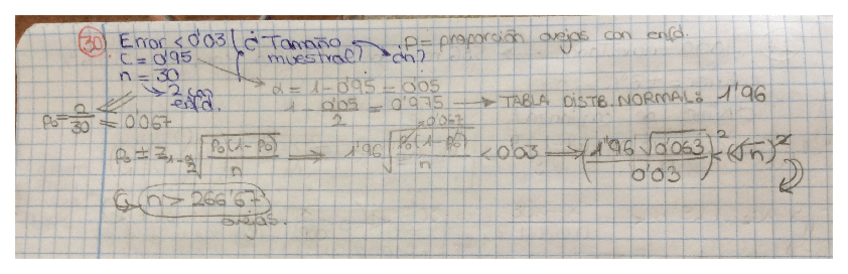 30 Error < 0'03 (¿Tamaño muestral? → ¿n? p = proporción ovejas con enfd.
C = 0'95
n = 30
→ 2 con enfd.
α = 1 - 0'95 = 0'05
1 - 0'05/2 = 0'975 → TABLA DISTB. NORMAL: 1'96
p₀ = 2/30 = 0'067
p₀ ± z₁₋α/₂ √(p₀(1-p₀)/n) → 1'96 √(p₀(1-p₀)/n) < 0'03 → (1'96 √0'063 / 0'03)² < (√n)²
= 0'067
↳ n > 266'67 ovejas.